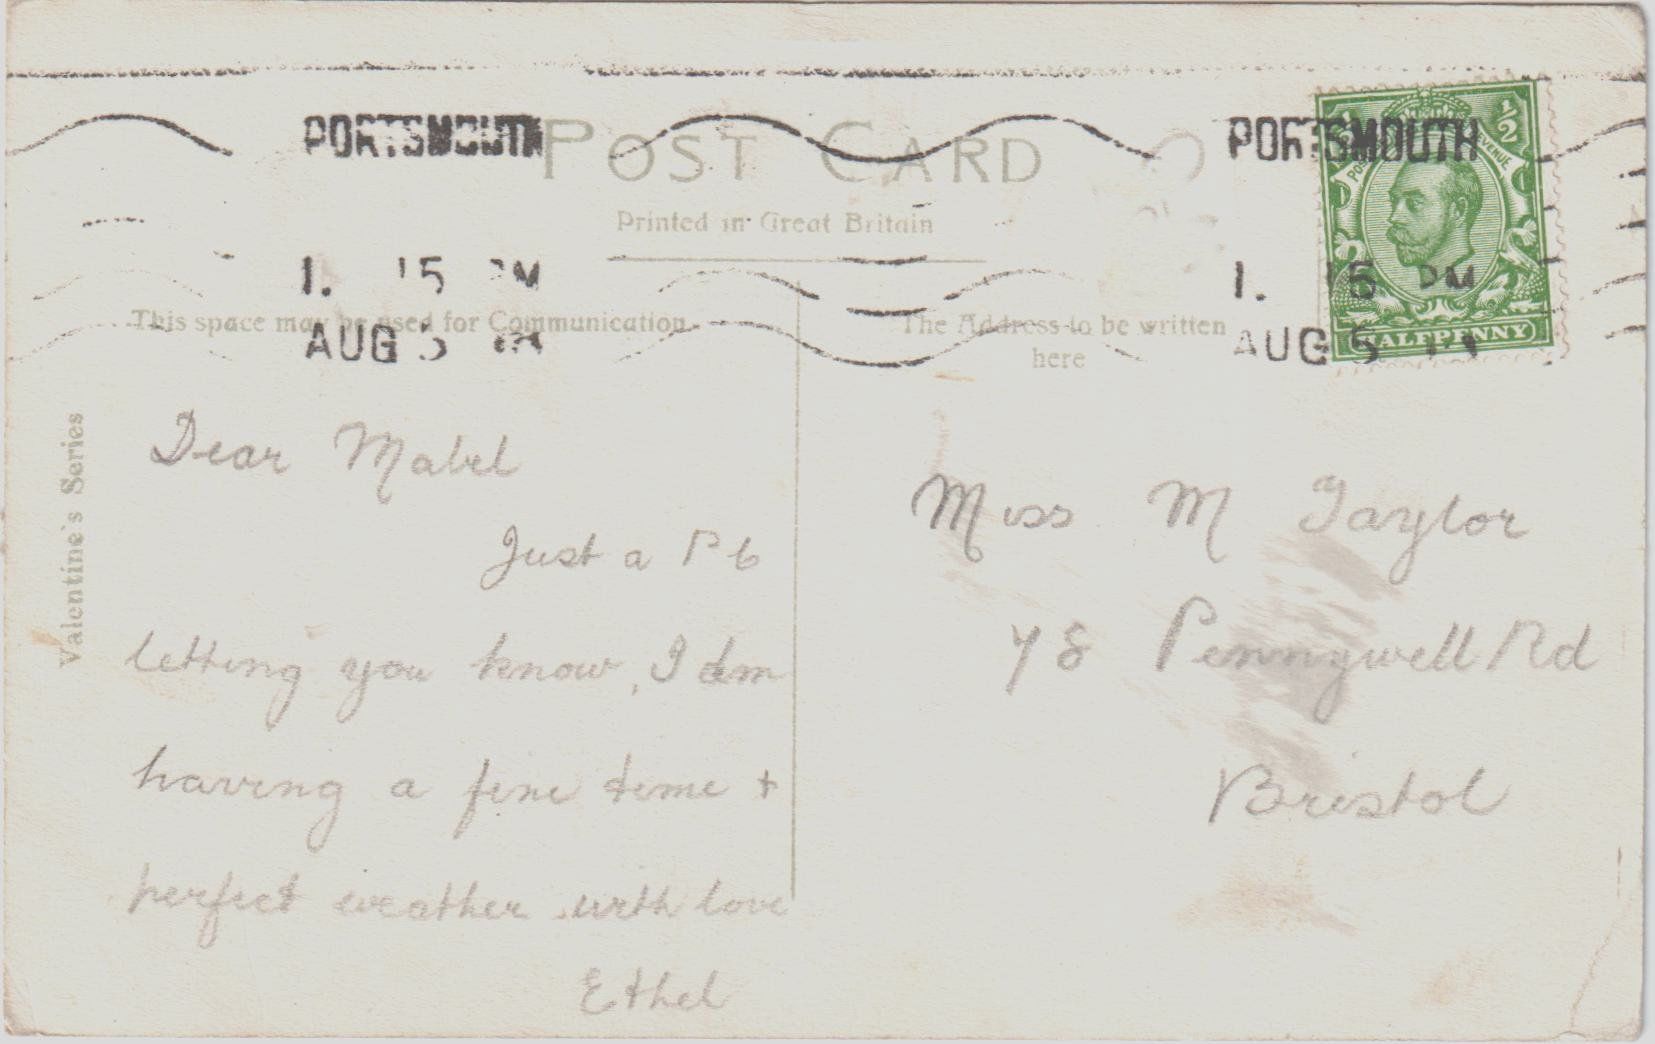 POST CARD
Printed in Great Britain
PORTSMOUTH
1. 15 PM
AUG 5
PORTSMOUTH
1. 15 PM
AUG 5
POSTAGE REVENUE
½
HALFPENNY
This space may be used for Communication
The Address to be written
here
Valentine's Series
Dear Mabel
Just a P C
letting you know, I am
having a fine time +
perfect weather with love
Ethel
Miss M Taylor
78 Pennywell Rd
Bristol